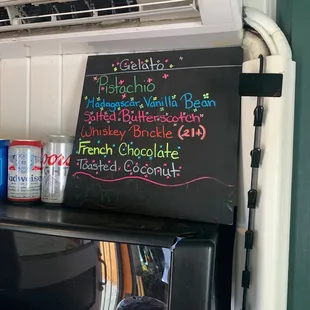 Gelato
Pistachio
Madagascar Vanilla Bean
Salted Butterscotch
Whiskey Brickle (21+)
French Chocolate
Toasted Coconut
Budweiser
Coors
LIGHT